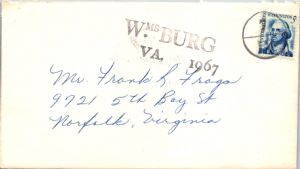 WASHINGTON
WMS BURG
VA. 1967
Mr. Frank L. Frogs
9721 5th Bay St
Norfolk, Virginia